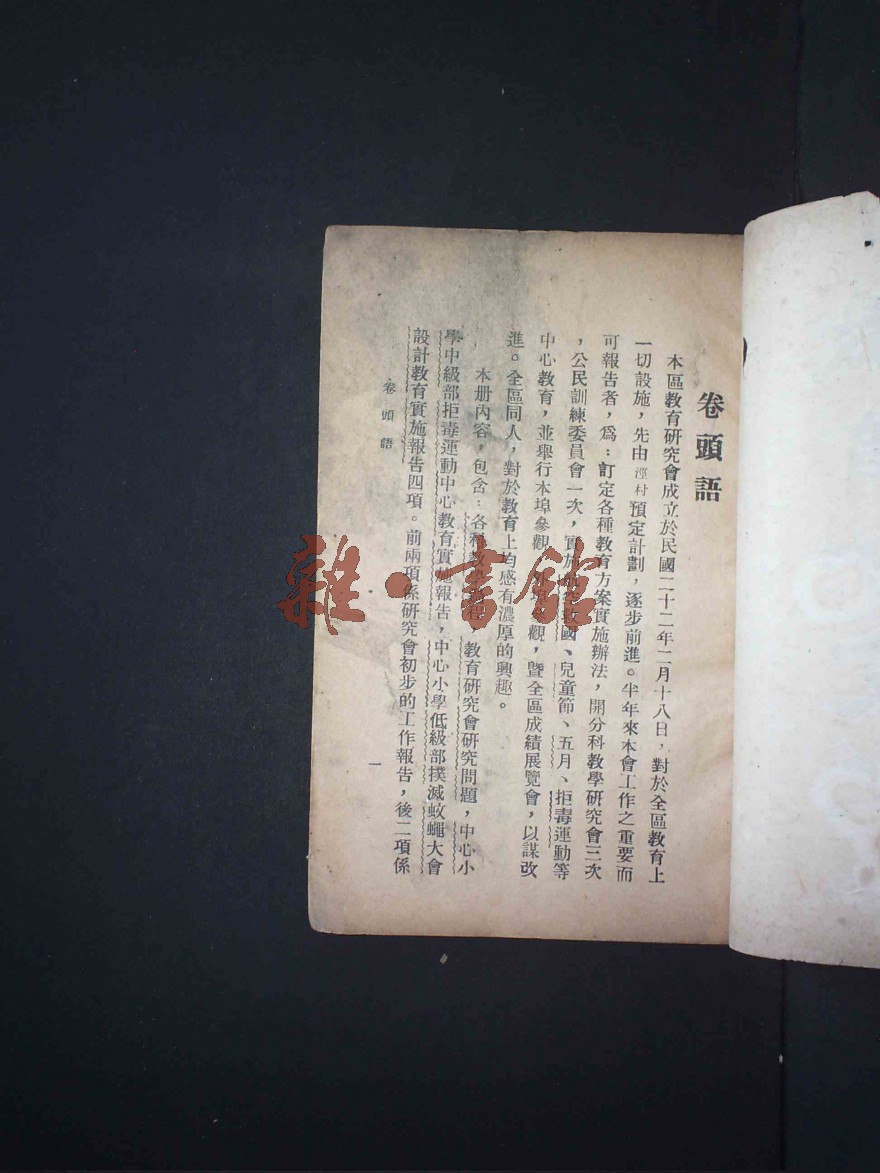 卷頭語
本區教育研究會成立於民國二十二年二月十八日，對於全區教育上
一切設施，先由涇村預定計劃，逐步前進。半年來本會工作之重要而
可報告者，爲：訂定各種教育方案實施辦法，開分科教學研究會三次
，公民訓練委員會一次，實施國、兒童節、五月、拒毒運動等
中心教育，並舉行本埠參觀觀，曁全區成績展覽會，以謀改
進。全區同人，對於教育上均感有濃厚的興趣。
本册內容，包含：各種，教育研究會研究問題，中心小
學中級部拒毒運動中心教育實施報告，中心小學低級部撲滅蚊蠅大會
設計教育實施報告四項。前兩項係研究會初步的工作報告，後二項係
卷頭語
一
雜·書館